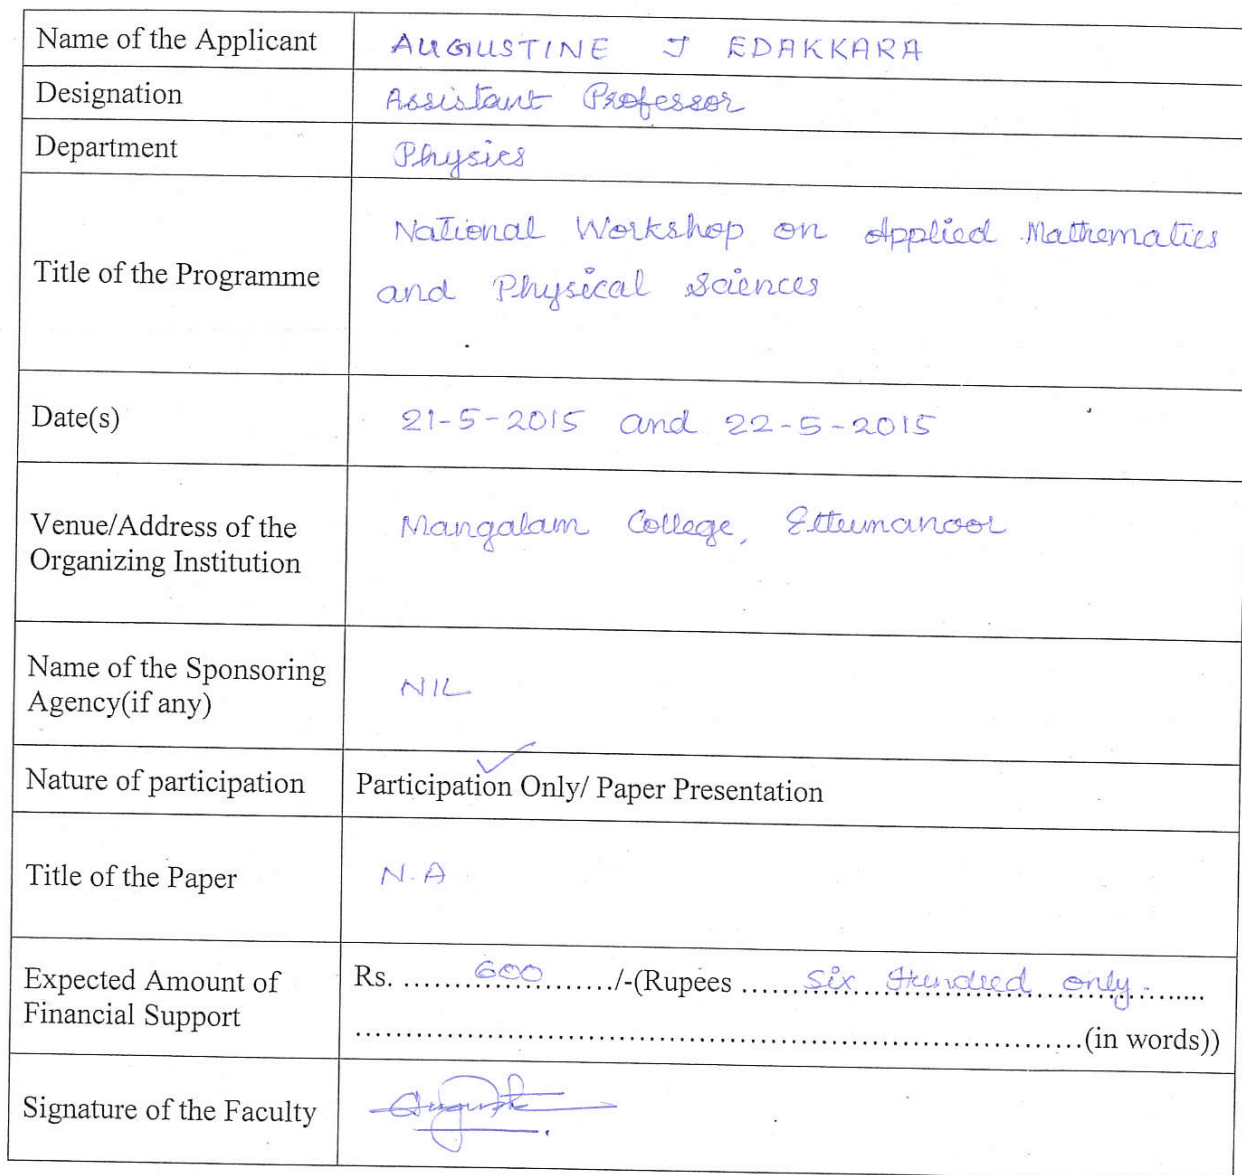 Name of the Applicant AUGUSTINE J EDAKKARA
Designation Assistant Professor
Department Physics
Title of the Programme National Workshop on Applied Mathematics
and Physical Sciences
Date(s) 21-5-2015 and 22-5-2015
Venue/Address of the Mangalam College, Ettumanoor
Organizing Institution
Name of the Sponsoring
Agency(if any) NIL
Nature of participation Participation Only/ Paper Presentation
Title of the Paper N.A
Expected Amount of Rs. ........600......../-(Rupees ......Six Hundred only.......
Financial Support ........................................................................(in words))
Signature of the Faculty